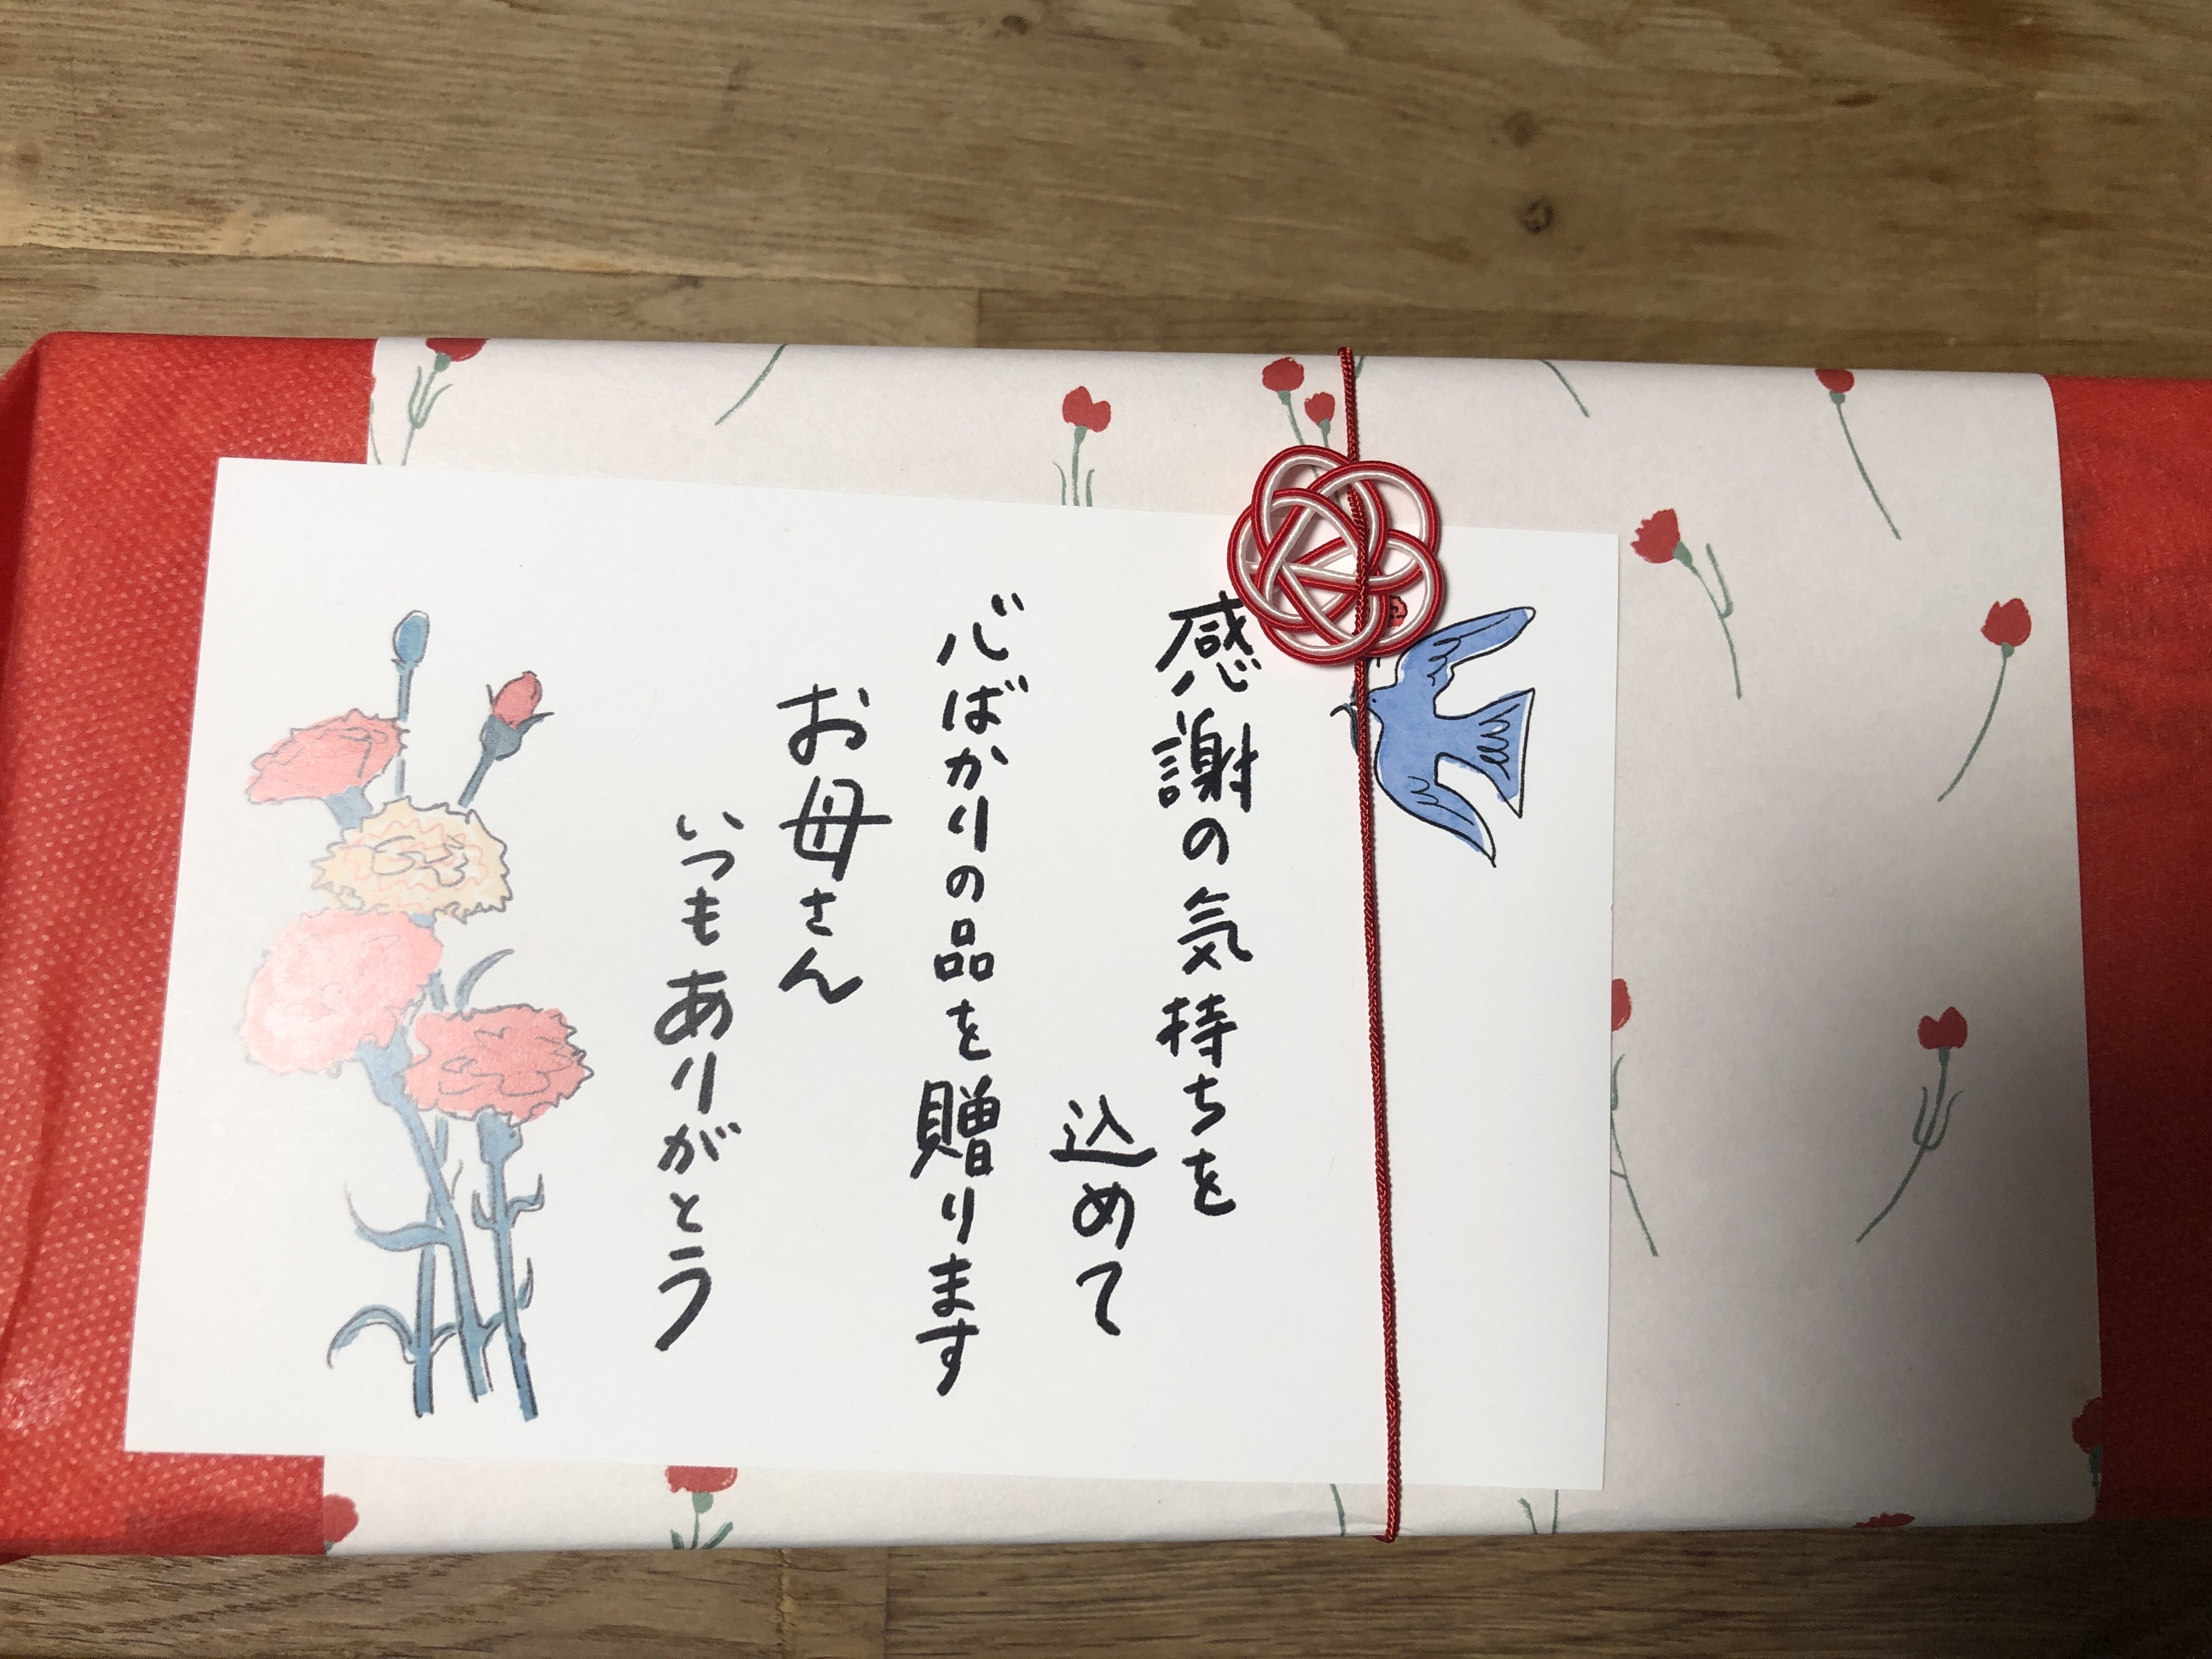 感謝の気持ちを
込めて
心ばかりの品を贈ります
お母さん
いつもありがとう